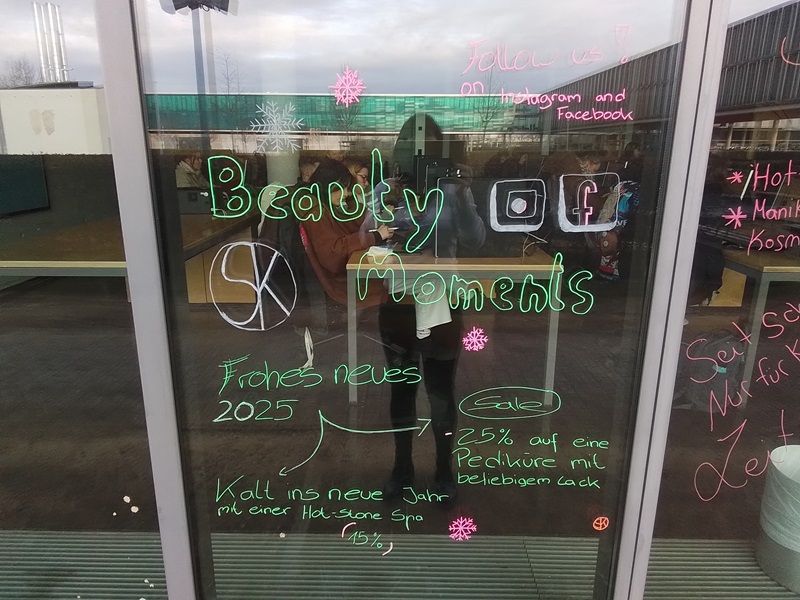 Follow us!
on Instagram and
Facebook
Beauty
f
SK
Moments
Frohes neues
2025
Sale
- 25% auf eine
Pediküre mit
beliebigem Lack
Kalt ins neue Jahr
mit einer Hot-Stone Spa
(15%)
SK
* Hot
* Manik
Kosm
Seit
Nur für K
Zeit